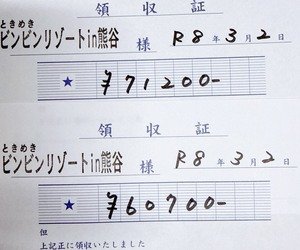 領収証
ときめき
ビンビンリゾートin熊谷 様 R8年3月2日
★ ¥71200-
領収証
ときめき
ビンビンリゾートin熊谷 様 R8年3月2日
★ ¥60700-
但
上記正に領収いたしました